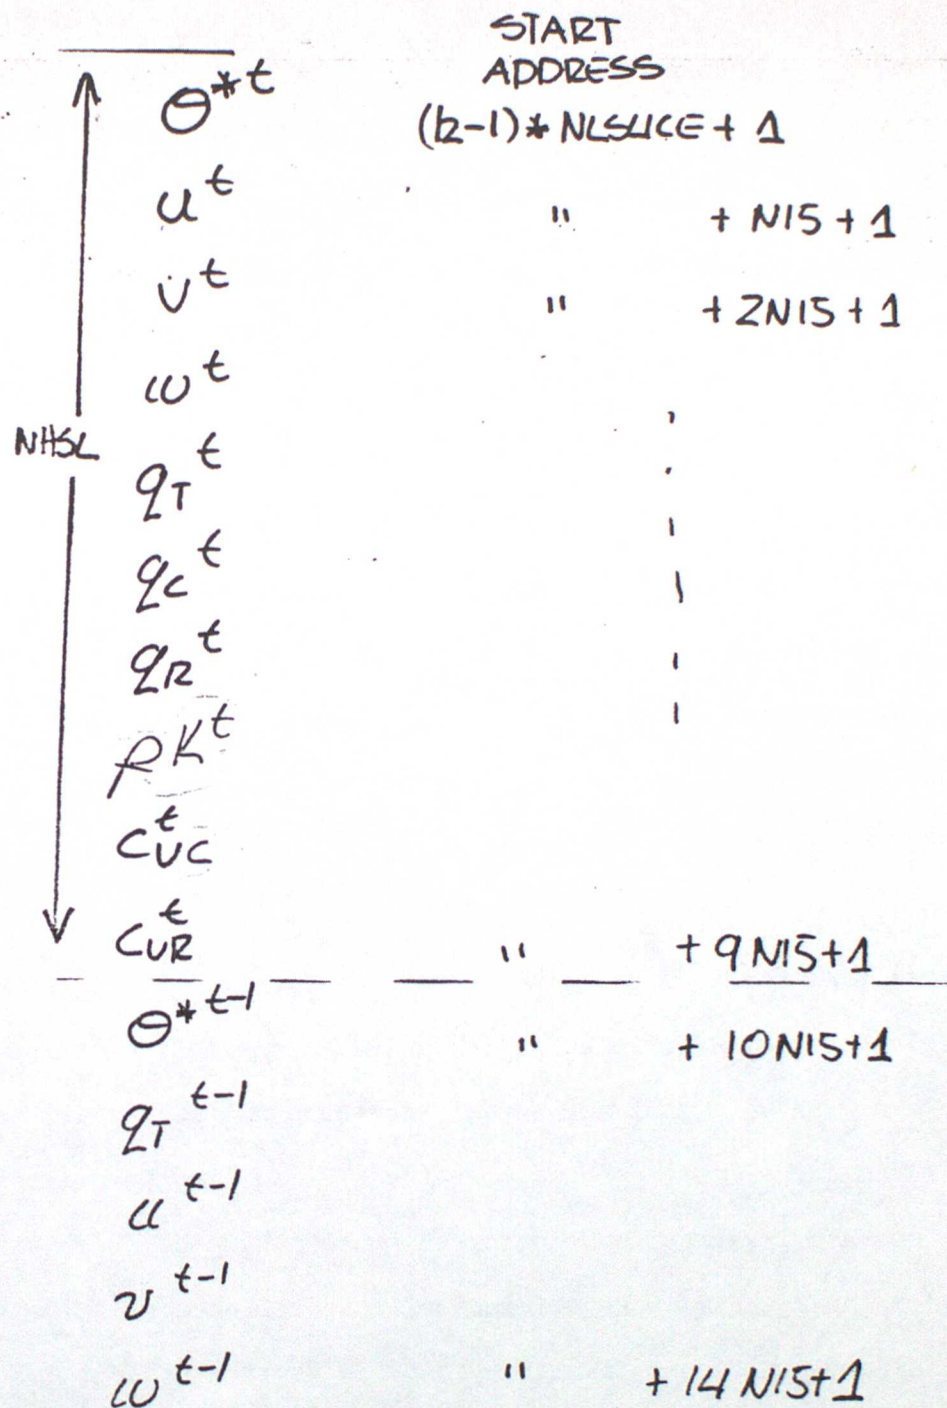 START
ADDRESS
θ*ᵗ (k-1)* NLSLICE + 1
uᵗ " + N15 + 1
vᵗ " + 2N15 + 1
wᵗ
NHSL
q_Tᵗ
q_Cᵗ
q_Rᵗ
ρKᵗ
C_UCᵗ
C_URᵗ " + 9N15+1
θ*ᵗ⁻¹ " + 10N15+1
q_Tᵗ⁻¹
uᵗ⁻¹
vᵗ⁻¹
wᵗ⁻¹ " + 14N15+1